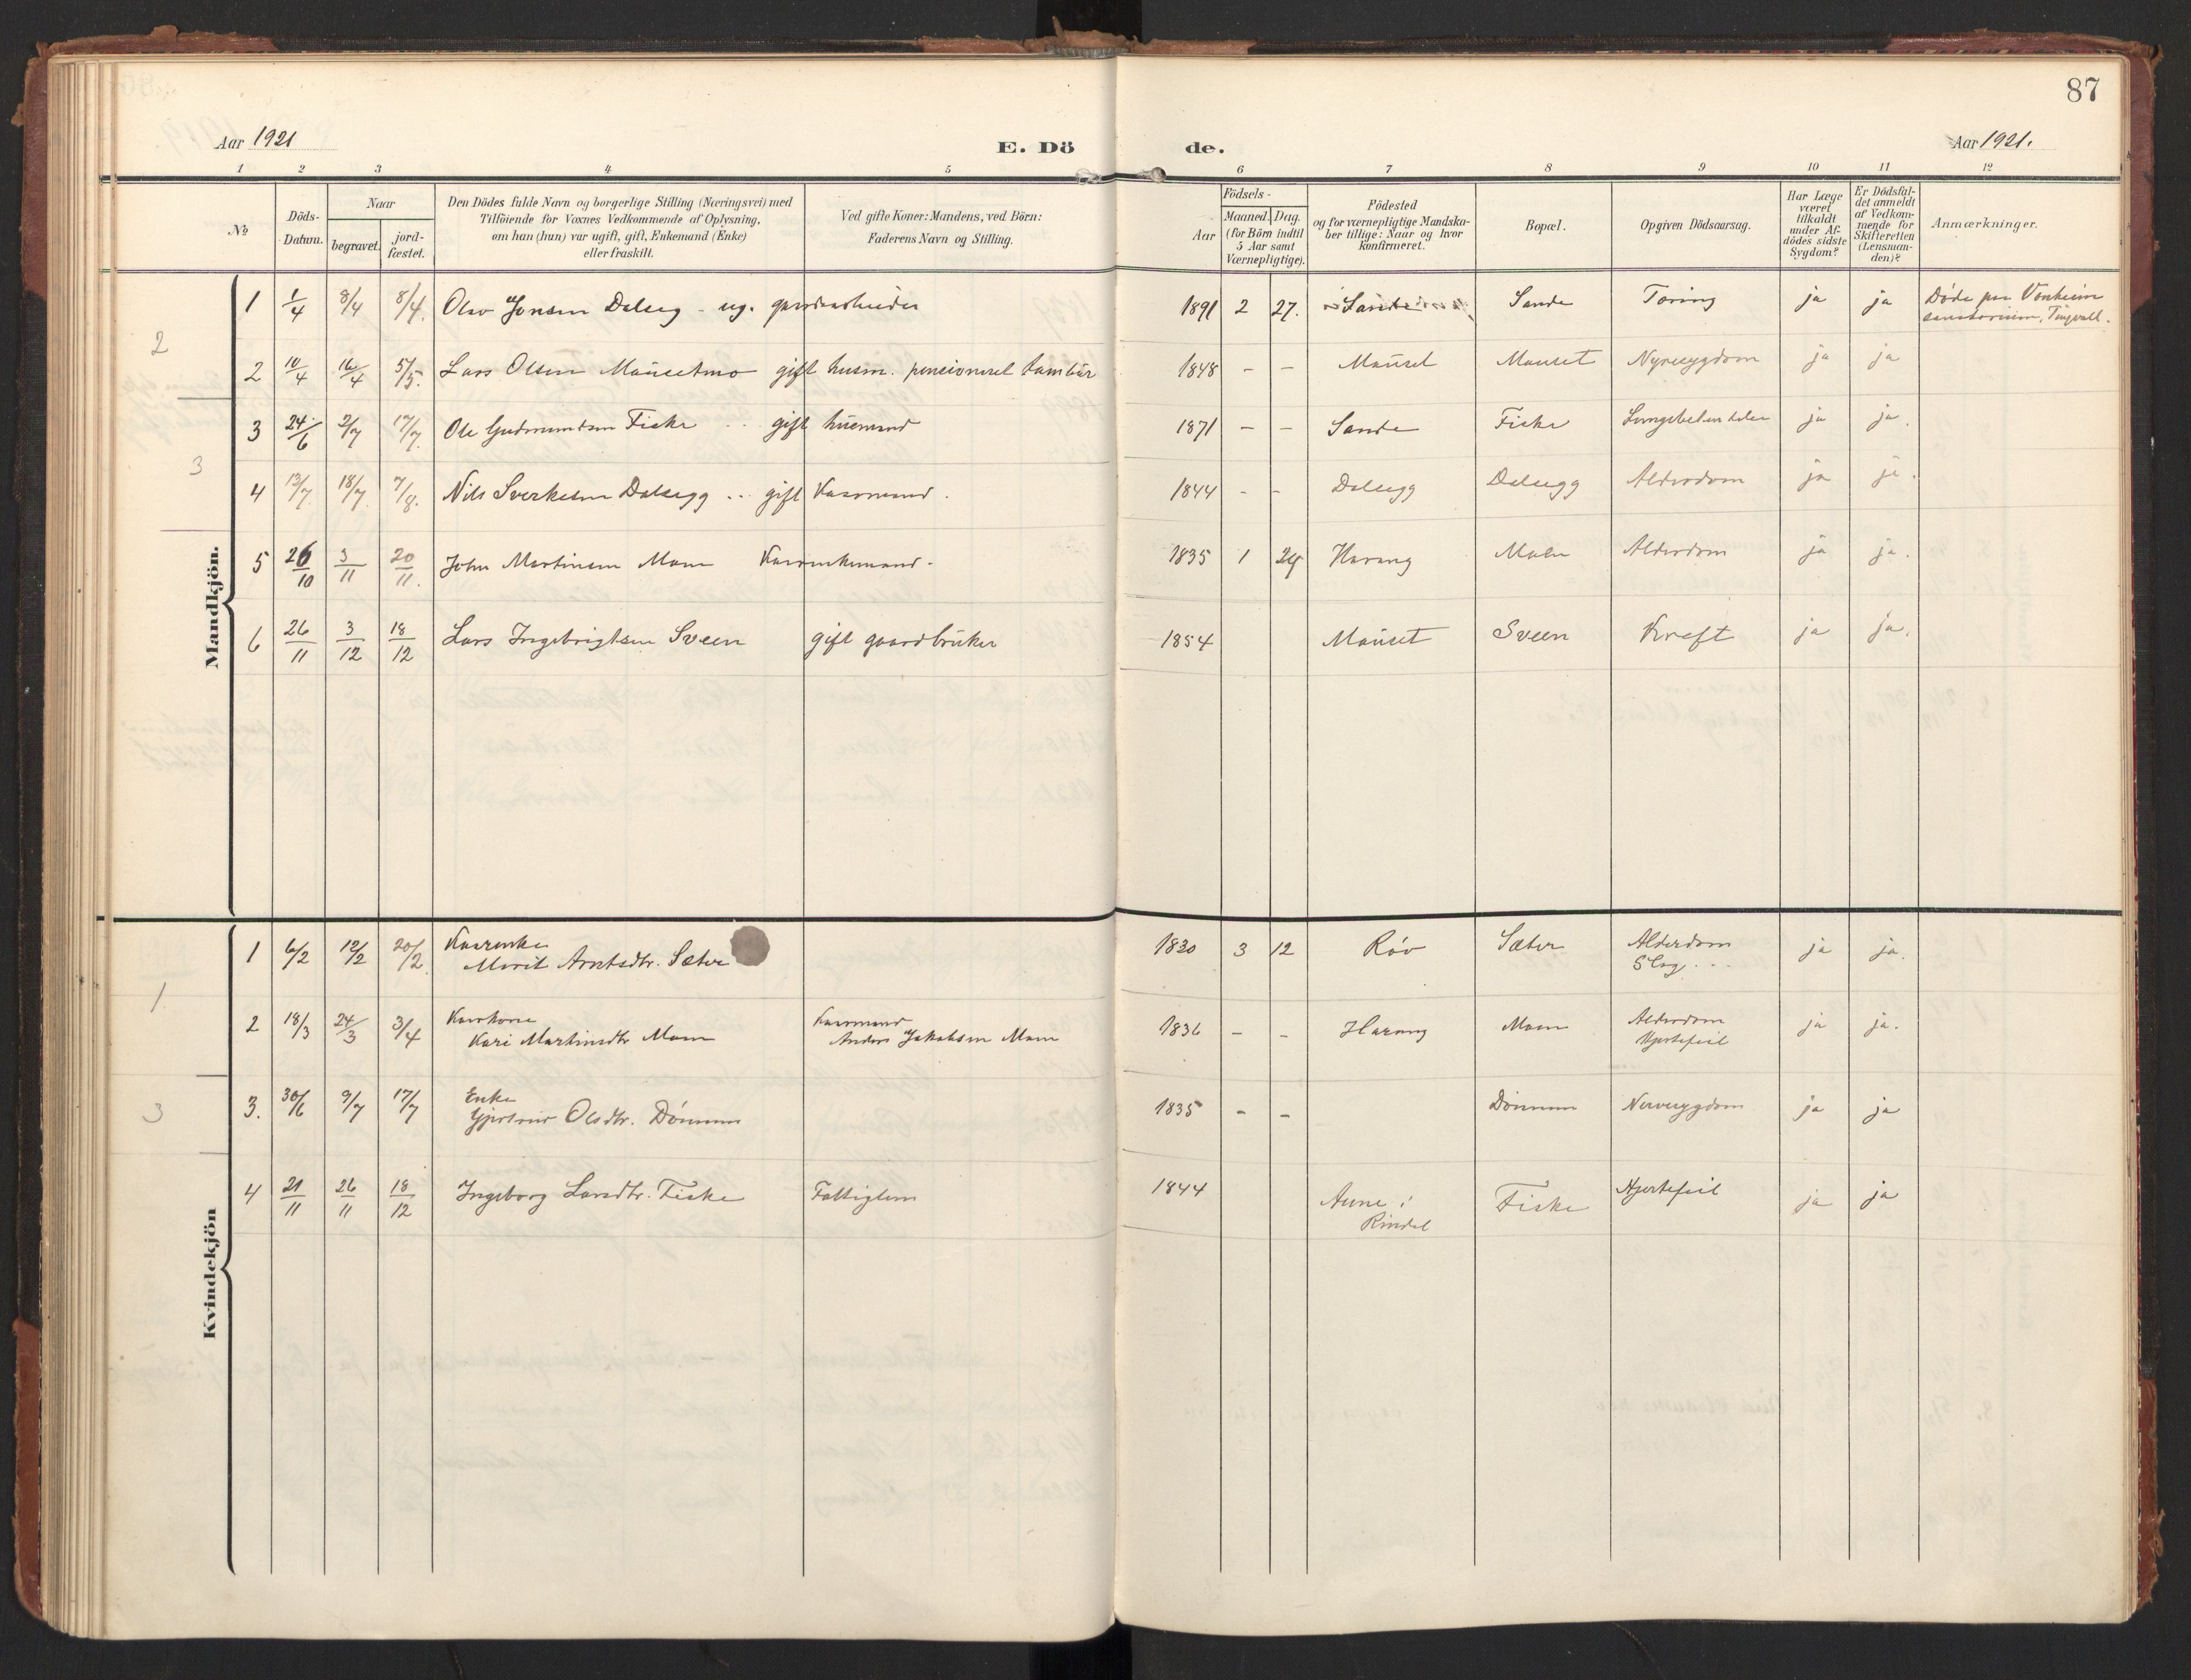 87
Aar 1921
E. Dö de.
Aar 1921.
1 2 3 4 5 6 7 8 9 10 11 12
No
Döds-Datum.
Naar
begravet.
jord-fæstet.
Den Dödes fulde Navn og borgerlige Stilling (Næringsvei) med
Tilföiende for Voxnes Vedkommende af Oplysning,
om han (hun) var ugift, gift, Enkemand (Enke)
eller fraskilt.
Ved gifte Koner: Mandens, ved Börn:
Faderens Navn og Stilling.
Födsels-
Aar
Maaned. Dag.
(for Börn indtil
5 Aar samt
Værnepligtige).
Födested
og for værnepligtige Mandska-
ber tillige: Naar og hvor
konfirmeret.
Bopæl.
Opgiven Dödsaarsag.
Har Læge
været
tilkaldt
under Af-
dödes sidste
Sygdom?
Er Dödsfal-
det anmeldt
af Vedkom-
mende for
Skifteretten
(Lensman-
den)?
Anmærkninger.
Mandkjön.
1 1/4 8/4 8/4. Olav Jonsen Dalseg - ug. gaardarbeider 1891 2 27. Sande Sande Tæring ja ja Døde paa Vonheim
sanatorium, Tingvoll.
2
2 10/4 16/4 5/5. Lars Olsen Mausetmo gift husm. pensioneret tambur 1848 - - Mauset Mauset Nyresygdom ja ja
3 24/6 2/7 17/7. Ole Gudmundsen Fiske .. gift husmand 1871 - - Sande Fiske Lungebetændelse ja ja.
3
4 13/7. 18/7. 7/8. Nils Sverkesen Dalsegg .. gift Kaarmand. 1844 - - Dalsegg Dalsegg Alderdom ja ja.
5 26/10 3/11 20/11. John Martinsen Moen Kaarenkemand. 1835 1 24 Harang Moen Alderdom ja ja.
6 26/11 3/12 18/12 Lars Ingebrigtsen Sveen gift gaardbruker 1854 Mauset Sveen Kræft ja ja.
Kvindekjön
1 6/2 12/2 20/2. Kaarenke
Marit Arntsdtr. Sæter 1830 3 12 Röv Sæter Alderdom
Slag... ja ja.
1.
2 18/3 24/3 3/4 Kaarkone
Kari Martinsdtr Moen Kaarmand
Anders Jakobsen Moen 1836 - - Harang Moen Alderdom
Hjertefeil ja ja.
3
3. 30/6 9/7 17/7 Enke
Olsdtr. Dönnem 1835 - - Dönnem Nervesygdom ja ja
4 21/11 26/11 18/12 Ingeborg Larsdtr. Fiske Fattiglem 1844 Aune i
Rindal Fiske Hjertefeil ja ja